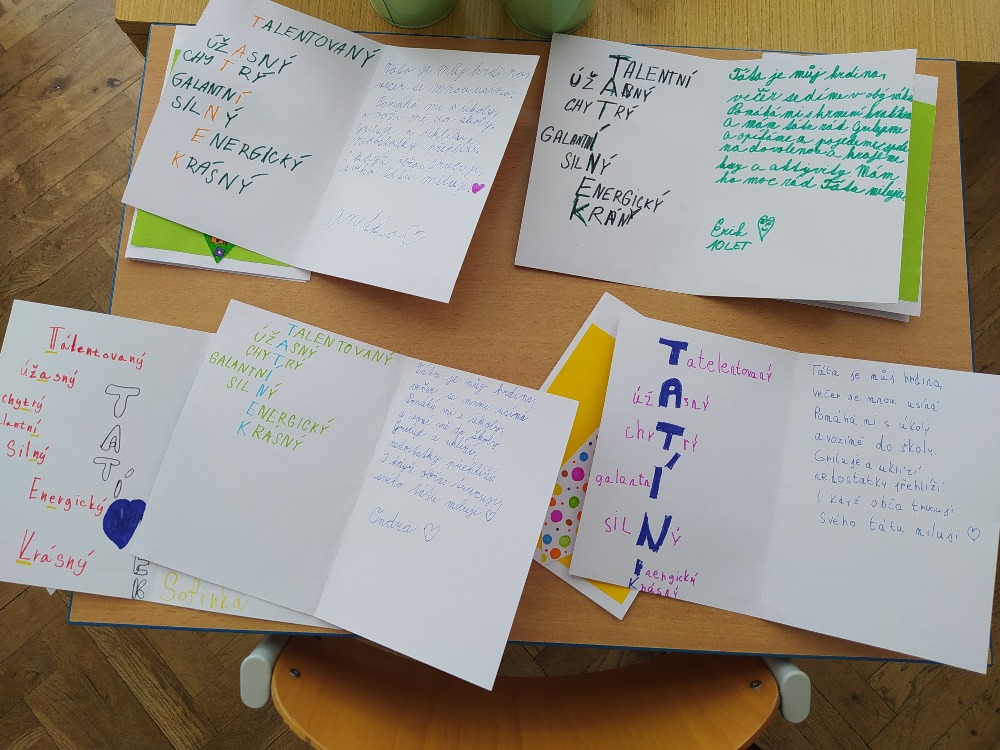 TALENTOVANÝ
ÚŽASNÝ
CHYTRÝ
GALANTNÍ
SILNÝ
ENERGICKÝ
KRÁSNÝ
Táta je můj hrdina,
večer se mnou usíná.
Pomáhá mi s úkoly
a vozí mě do školy.
Griluje a uklízí,
nedostatky přehlíží.
I když občas trucuji,
svého tátu miluji.
Anežka
TALENTNÍ
ÚŽASNÝ
CHYTRÝ
GALANTNÍ
SILNÝ
ENERGICKÝ
KRÁNÝ
Táta je můj hrdina,
večer sedíme v obýváku
Pomáhá mi s krmení
a mám tátu rád Grilujeme
a opékáme a pojedeme spolu
na dovolenou a hrajeme
hry a aktyvity. Mám
ho moc rád Tátu miluju.
Erik
10 LET
Tálentovaný
Úžasný
chytrý
lantní
Silný
Energický
Krásný
TATÍ
EK
Sofinka
TALENTOVANÝ
ÚŽASNÝ
CHYTRÝ
GALANTNÍ
SILNÝ
ENERGICKÝ
KRÁSNÝ
Táta je můj hrdina,
večer se mnou usíná.
Pomáhá mi s úkoly
a vozí mě do školy.
Griluje a uklízí,
nedostatky přehlíží.
I když občas trucuji,
svého tátu miluji
Ondra
Tatelentovaný
ÚžAsný
chyTrý
galantnÍ
SILNÝ
Energický
Krásný
Táta je můj hrdina,
večer se mnou usíná.
Pomáhá mi s úkoly
a vozímě do školy.
Griluje a uklízí
nedostatky přehlíží.
I když obča trucuji
Svého tátu miluji